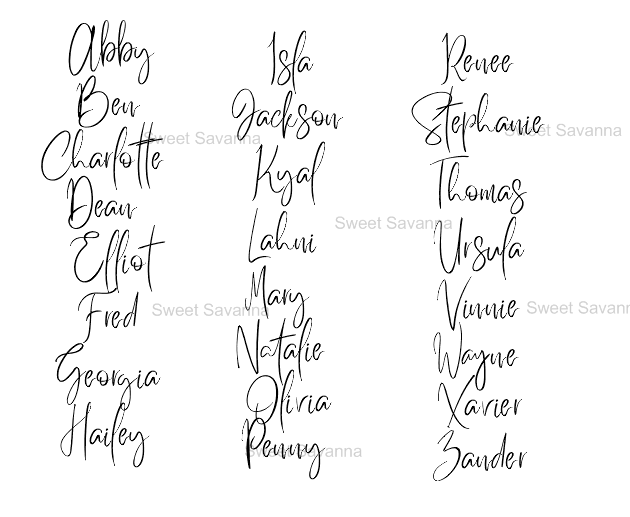 Abby
Ben
Charlotte
Dean
Elliot
Fred
Georgia
Hailey
Isla
Jackson
Kyal
Lahni
Mary
Natalie
Olivia
Penny
Renee
Stephanie
Thomas
Ursula
Vinnie
Wayne
Xavier
Zander
Sweet Savanna
Sweet Savanna
Sweet Savanna
Sweet Savanna
Sweet Savann
Sweet Savanna